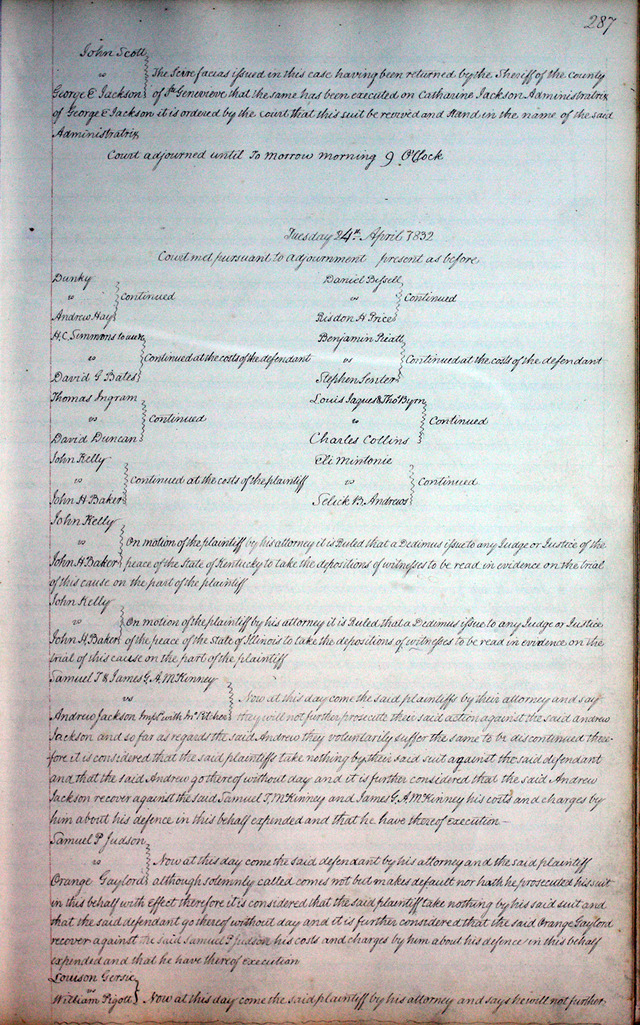 287
John Scott
vs
The Scire facias issued in this case having been returned by the Sheriff of the County
George E Jackson of Ste Genevieve that the same has been executed on Catharine Jackson Administratrix
of George E Jackson it is ordered by the Court that this suit be revived and stand in the name of the said
Administratrix
Court adjourned until To morrow morning 9 O'Clock
Tuesday 24th April 1832
Court met pursuant to adjournment present as before
Dunky
vs Continued
Andrew Hay
Daniel Bissell
vs Continued
Risdon H Price
H. C. Simmons to use
vs Continued at the costs of the defendant
David G Bates
Benjamin
vs Continued at the costs of the defendant
Stephen
Thomas Ingram
vs Continued
David Duncan
Louis Jaques & Thos Byrn
vs Continued
Charles Collins
John Kelly
vs Continued at the costs of the plaintiff
John H Baker
Eli Mintonie
vs Continued
Selick B. Andrews
John Kelly
vs On motion of the plaintiff by his attorney it is Ruled that a Dedimus issue to any Judge or Justice of the
John H Baker peace of the State of Kentucky to take the depositions of witnesses to be read in evidence on the trial
of this cause on the part of the plaintiff
John Kelly
vs On motion of the plaintiff by his attorney it is Ruled that a Dedimus issue to any Judge or Justice
John H. Baker of the peace of the State of Illinois to take the depositions of witnesses to be read in evidence on the
trial of this cause on the part of the plaintiff
Samuel T & James G. A. McKinney
vs Now at this day come the said plaintiffs by their attorney and say
Andrew Jackson Impl. with they will not further prosecute their said action against the said andrew
Jackson and so far as regards the said Andrew they voluntarily suffor the same to be discontinued there-
fore it is considered that the said plaintiffs take nothing by their said suit against the said defendant
and that the said Andrew go thereof without day and it is further considered that the said Andrew
Jackson recover against the said Samuel T, McKinney and James G. A McKinney his costs and charges by
him about his defence in this behalf expended and that he have thereof execution-
Samuel P Judson
vs Now at this day come the said defendant by his attorney and the said plaintiff
Orange Gaylord although solemnly called comes not but makes default nor hath he prosecuted his suit
in this behalf with effect therefore it is considered that the said plaintiff take nothing by his said suit and
that the said defendant go thereof without day and it is further considered that the said Orange Gaylord
recover against the said Samuel P Judson his costs and charges by him about his defence in this behalf
expended and that he have thereof execution
Louison
vs
William Pigott Now at this day come the said plaintiff by his attorney and says he will not further